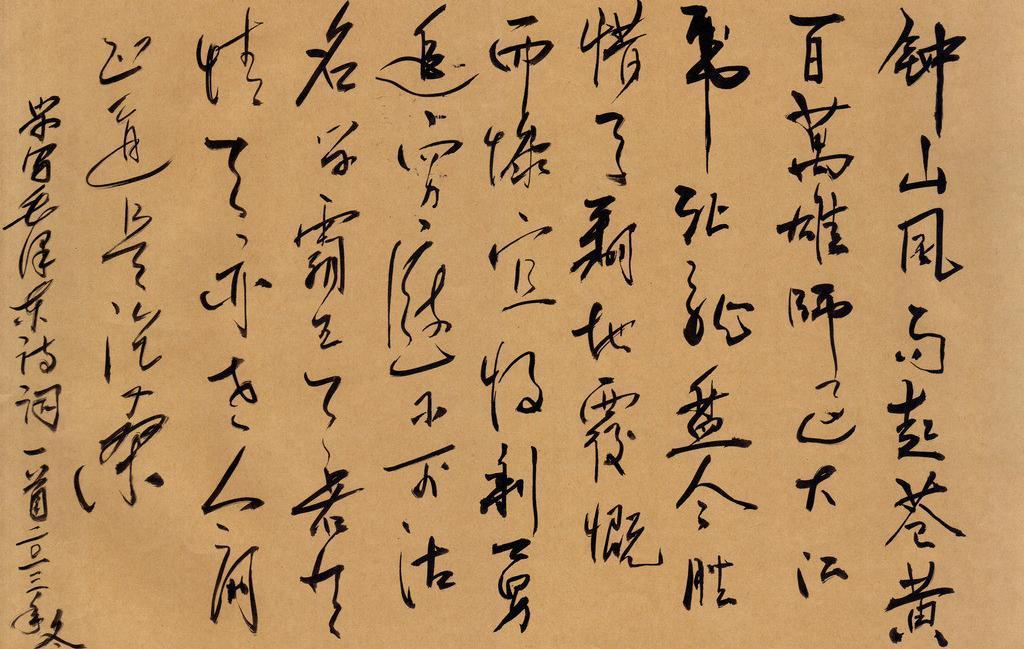 钟山风雨起苍黄
百萬雄师过大江
虎踞龙盘今胜
惜天翻地覆慨
而慷宜将剩勇
追穷寇不可沽
名学霸王天若有
情天亦老人间
正道是沧桑
写毛泽东诗词一首二〇一三年冬